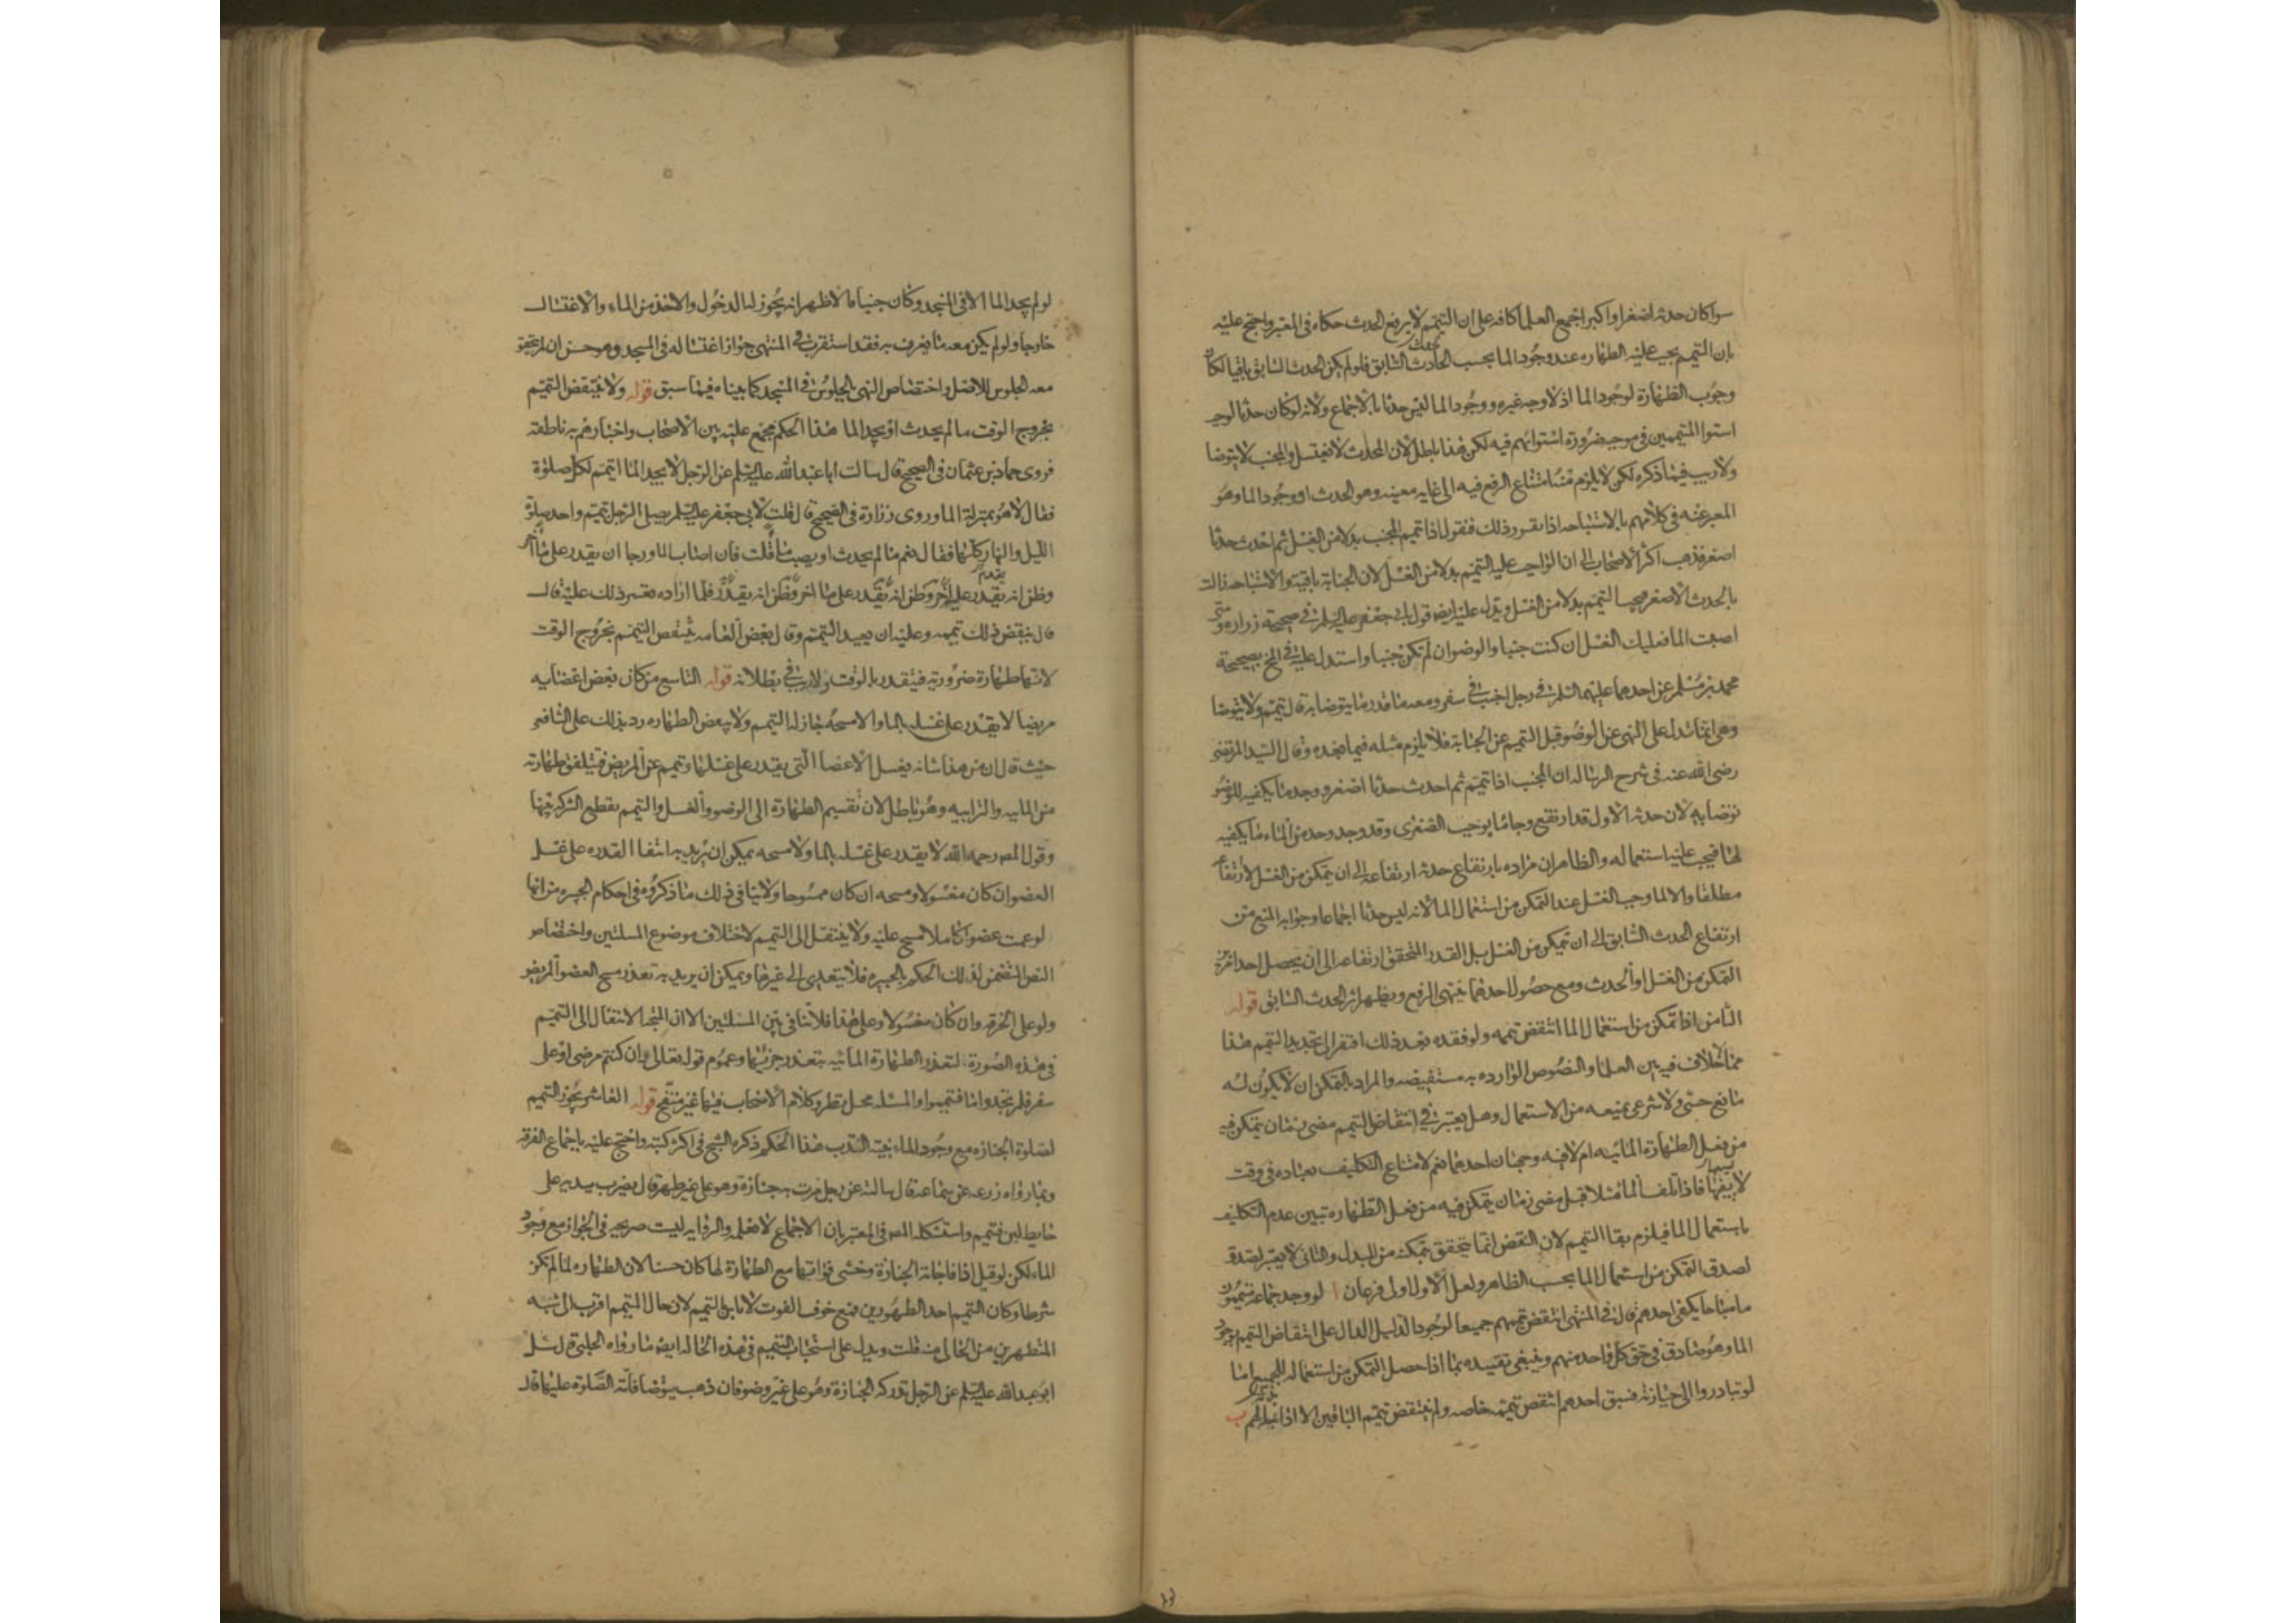 سواكان حدثه اصغرا واكبر اجمع العلما كافه على ان التيمم لا يرفع الحدث حكاه في المعتبر واحتج عليه
بان التيمم يجب عليه الطهاره عند وجود الما بحسب الحادث السابق فلو لم يكن الحدث السابق باقيا لكان
وجوب الطهارة لوجود الما اذ لا وجه غيره ووجود الما ليس حدثا بالاجماع ولانه لو كان حدثا لوجب
استوا المتيممين في موجبه ضرورة استوائهم فيه لكن هذا باطل لان المحدث لا يغتسل والمجنب لا يتوضا
ولا ريب فيما ذكره لكن لا يلزم منه امتناع الرفع فيه الى غايه معينه وهو الحدث او وجود الما وهو
المعبر عنه في كلامهم بالاستباحه اذا تقرر ذلك فنقول اذا تيمم المجنب بدلا من الغسل ثم احدث حدثا
اصغر فذهب اكثر الاصحاب الى ان الواجب عليه التيمم بدلا من الغسل لان الجنابة باقيه والاستباحه زالت
بالحدث الاصغر فيجب التيمم بدلا من الغسل ويدل عليه ايضا قول ابي جعفر عليه السلم في صحيحة زراره ومتى
اصبت الما فعليك الغسل ان كنت جنبا والوضو ان لم تكن جنبا واستدل عليه في المخ بصحيحة
محمد بن مسلم عن احدهما عليهما السلم في رجل اجنب في سفر ومعه ما قدر ما يتوضا به قال يتيمم ولا يتوضا
وهي انما تدل على النهي عن الوضو قبل التيمم عن الجنابة فلا يلزم مثله فيما بعده وقال السيد المرتضى
رضي الله عنه في شرح الرساله ان المجنب اذا تيمم ثم احدث حدثا اصغر ووجد ما يكفيه للوضو
توضا به لان حدثه الاول قد ارتفع وجا ما يوجب الصغرى وقد وجد من الماء ما يكفيه
لها فيجب عليه استعماله والظاهر ان مراده بارتفاع حدثه ارتفاعه الى ان يتمكن من الغسل لا ارتفاعه
مطلقا والا لما وجب الغسل عند التمكن من استعمال الما لانه ليس حدثا اجماعا وجوابه المنع من
ارتفاع الحدث السابق الى ان يتمكن من الغسل بل القدر المتحقق ارتفاعه الى ان يحصل احد امرين
التمكن من الغسل او الحدث ومع حصول احدهما ينتهي الرفع ويظهر اثر الحدث السابق قوله
الثامن اذا تمكن من استعمال الما انتقض تيممه ولو فقده بعد ذلك افتقر الى تجديد التيمم هذا
مما لا خلاف فيه بين العلما والنصوص الوارده به مستفيضه والمراد بالتمكن ان لا يكون له
مانع حسي ولا شرعي يمنعه من الاستعمال وهل يعتبر في انتقاض التيمم مضي زمان يتمكن فيه
من فعل الطهارة المائيه ام لا فيه وجهان احدهما نعم لامتناع التكليف بعباده في وقت
لا يسعها فاذا تلف الما مثلا قبل مضي زمان يتمكن فيه من فعل الطهاره تبين عدم التكليف
باستعمال الما فيلزم بقا التيمم لان النقض انما يتحقق بتمكنه من المبدل والثاني لا يعتبر لصدق
لصدق التمكن من استعمال الما بحسب الظاهر ولعل الاول اولى فرعان ا لو وجد جماعة متيممون
ما مباحا يكفي احدهم قال في المنتهى انتقض تيممهم جميعا لوجود الدليل الدال على انتقاض التيمم بوجود
الما وهو صادق في حق كل واحد منهم وينبغي تقييده بما اذا حصل التمكن من استعماله للجميع اما
لو تبادروا الى حيازته فسبق احدهم انتقض تيممه خاصه ولم ينتقض تيمم الباقين الا اذا بذله لهم ب
لو لم يجد الما الا في المسجد وكان جنبا فالاظهر انه يجوز له الدخول والاخذ من الماء والاغتسال
خارجا ولو لم يكن معه ما يغرف به فقد استقرب في المنتهى جواز اغتساله في المسجد وهو حسن ان لم يتحقق
معه الجلوس للاصل واختصاص النهي بالجلوس في المسجد كما بيناه فيما سبق قوله ولا ينتقض التيمم
بخروج الوقت ما لم يحدث او يجد الما هذا الحكم مجمع عليه بين الاصحاب واخبارهم به ناطقه
فروى حماد بن عثمان في الصحيح قال سالت ابا عبد الله عليه السلم عن الرجل لا يجد الما ايتيمم لكل صلوة
فقال لا هو بمنزلة الما وروى زرارة في الصحيح قال قلت لابي جعفر عليه السلم يصلي الرجل بتيمم واحد صلوة
الليل والنهار كلها فقال نعم ما لم يحدث او يصب ما قلت فان اصاب الما ورجا ان يقدر على ما آخر
وظن انه يقدر عليه فلما اراده تعسر ذلك عليه قال
قال ينقض ذلك تيممه وعليه ان يعيد التيمم وقال بعض العامه ينتقض التيمم بخروج الوقت
لانها طهارة ضرورية فيتقدر بالوقت ولا ريب في بطلانه قوله التاسع من كان بعض اعضايه
مريضا لا يقدر على غسله بالما ولا مسحه جاز له التيمم ولا يبعض الطهاره رد بذلك على الشافعي
حيث قال ان من هذا شانه يغسل الاعضا التي يقدر على غسلها وتيمم عن المريض فيتلفق طهارته
من الماييه والترابيه وهو باطل لان تقسيم الطهارة الى الوضو والغسل والتيمم يقطع الشركة بينها
وقول المص رحمه الله لا يقدر على غسله بالما ولا مسحه يمكن ان يريد به انتفا القدره على غسل
العضو ان كان مغسولا ومسحه ان كان ممسوحا ولا ينافي ذلك ما ذكروه في احكام الجبيره من انها
لو عمت عضوا كاملا مسح عليه ولا ينتقل الى التيمم لاختلاف موضوع المسلتين واختصاص
النص المتضمن لذلك الحكم بالجبيره فلا يتعدى الى غيرها ويمكن ان يريد به تعذر مسح العضو المريض
ولو على الخرقه وان كان مغسولا وعلى هذا فلا تنافي بين المسلتين الا ان المتجه الانتقال الى التيمم
في هذه الصورة لتعذر الطهارة المائيه بتعذر جزئيها وعموم قوله تعالى وان كنتم مرضى او على
سفر فلم تجدوا ما فتيمموا والمسئله محل نظر وكلام الاصحاب فيها غير منقح قوله العاشر يجوز التيمم
لصلوة الجنازه مع وجود الماء بنيه الندب هذا الحكم ذكره الشيخ في اكثر كتبه واحتج عليه باجماع الفرقه
وبما رواه زرعه عن سماعة قال سالته عن رجل مرت به جنازة وهو على غير طهر قال يضرب بيديه على
حايط لبن فيتيمم واستشكله المص في المعتبر بان الاجماع لا نعلمه والروايه ليست صريحه في الجواز مع وجود
الماء لكن لو قيل اذا فاجاته الجنازة وخشي فواتها مع الطهارة لها كان حسنا لان الطهاره لما لم تكن
شرطا وكان التيمم احد الطهورين فمع خوف الفوت لا باس بالتيمم لان حال المتيمم اقرب الى شبه
المتطهرين من الخالي منه قلت ويدل على استحباب التيمم في هذه الحاله ايضا ما رواه الحلبي قال سئل
ابو عبد الله عليه السلم عن الرجل تدركه الجنازة وهو على غير وضو فان ذهب يتوضا فاتته الصلوة عليها قال